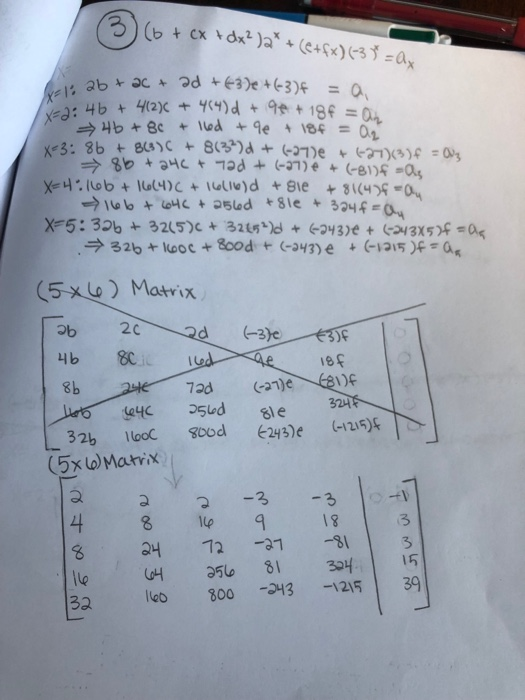 ③ (b + cx + dx²)2ˣ + (e+fx)(-3)ˣ = aₓ
x=1: 2b + 2c + 2d + (-3)e + (-3)f = a₁
x=2: 4b + 4(2)c + 4(4)d + 9e + 18f = a₂
⇒ 4b + 8c + 16d + 9e + 18f = a₂
x=3: 8b + 8(3)c + 8(3²)d + (-27)e + (-27)(3)f = a₃
⇒ 8b + 24c + 72d + (-27)e + (-81)f = a₃
x=4: 16b + 16(4)c + 16(16)d + 81e + 81(4)f = a₄
⇒ 16b + 64c + 256d + 81e + 324f = a₄
x=5: 32b + 32(5)c + 32(5²)d + (-243)e + (-243)(5)f = a₅
⇒ 32b + 160c + 800d + (-243)e + (-1215)f = a₅
(5x6) Matrix
2b 2c 2d (-3)e (-3)f 0
4b 8c 16d 9e 18f 0
8b 24c 72d (-27)e (-81)f 0
16b 64c 256d 81e 324f 0
32b 160c 800d (-243)e (-1215)f 0
(5x6) Matrix
2 2 2 -3 -3 -1
4 8 16 9 18 3
8 24 72 -27 -81 3
16 64 256 81 324 15
32 160 800 -243 -1215 39